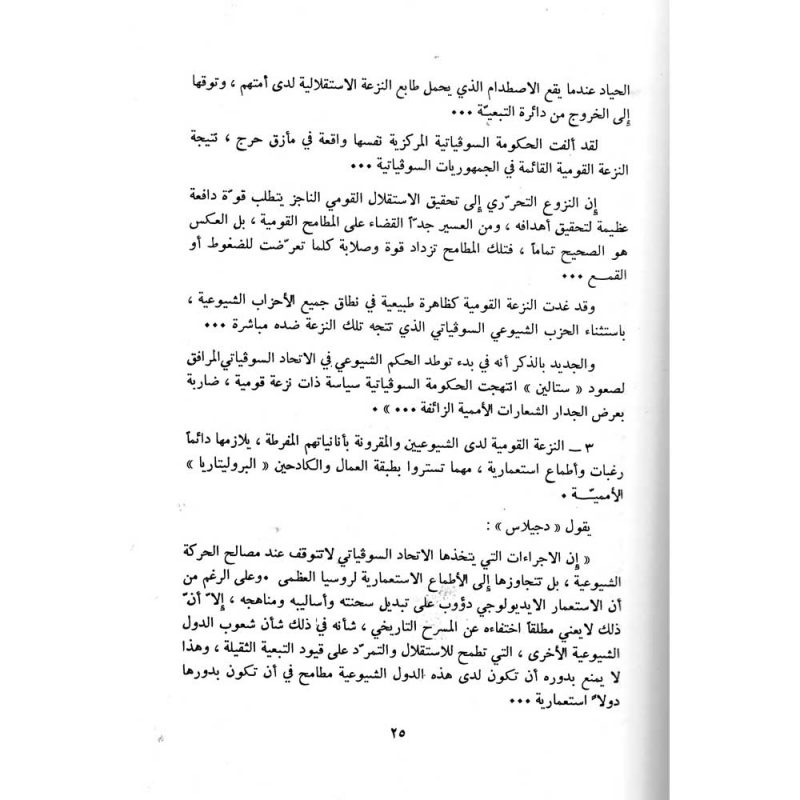 الحياد عندما يقع الاصطدام الذي يحمل طابع النزعة الاستقلالية لدى أمتهم ، وتوقها
إلى الخروج من دائرة التبعيّة •••
لقد ألفت الحكومة السوڤياتية المركزية نفسها واقعة في مأزق حرج ، نتيجة
النزعة القومية القائمة في الجمهوريات السوڤياتية •••
إن النزوع التحرّري إلى تحقيق الاستقلال القومي الناجز يتطلب قوّة دافعة
عظيمة لتحقيق أهدافه ، ومن العسير جدّاً القضاء على المطامح القومية ، بل العكس
هو الصحيح تماماً ، فتلك المطامح تزداد قوة وصلابة كلما تعرّضت للضغوط أو
القمـع •••
وقد غدت النزعة القومية كظاهرة طبيعية في نطاق جميع الأحزاب الشيوعية ،
باستثناء الحزب الشيوعي السوڤياتي الذي تتجه تلك النزعة ضده مباشرة •••
والجديد بالذكر أنه في بدء توطد الحكم الشيوعي في الاتحاد السوڤياتي المرافق
لصعود « ستالين » انتهجت الحكومة السوڤياتية سياسة ذات نزعة قومية ، ضاربة
بعرض الجدار الشعارات الأممية الزائفة ••• » •
٣ ـ النزعة القومية لدى الشيوعيين والمقرونة بأنانياتهم المفرطة ، يلازمها دائماً
رغبات وأطماع استعمارية ، مهما تستروا بطبقة العمال والكادحين « البروليتاريا »
الأمميّــة •
يقول « دجيلاس » :
« إن الاجراءات التي يتخذها الاتحاد السوڤياتي لاتتوقف عند مصالح الحركة
الشيوعية ، بل تتجاوزها إلى الأطماع الاستعمارية لروسيا العظمى •وعلى الرغم من
أن الاستعمار الايديولوجي دؤوب على تبديل سحنته وأساليبه ومناهجه ، إلاّ أنّ
ذلك لايعني مطلقاً اختفاءه عن المسرح التاريخي ، شأنه في ذلك شأن شعوب الدول
الشيوعية الأخرى ، التي تطمح للاستقلال والتمرّد على قيود التبعية الثقيلة ، وهذا
لا يمنع بدوره أن تكون لدى هذه الدول الشيوعية مطامح في أن تكون بدورها
دولاً استعمارية •••
٢٥